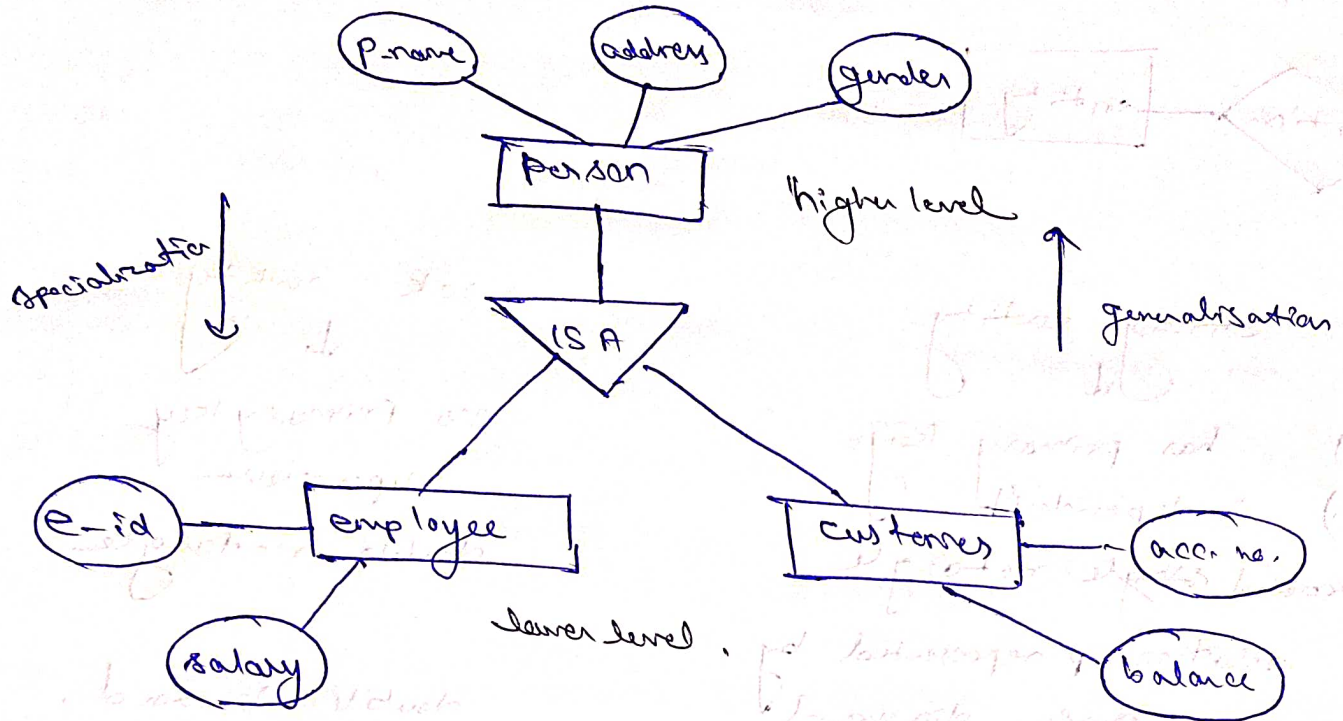 P-name
address
gender
person
higher level
specialization
generalisation
ISA
e-id
employee
customer
acc. no.
lower level.
salary
balance
has primary key